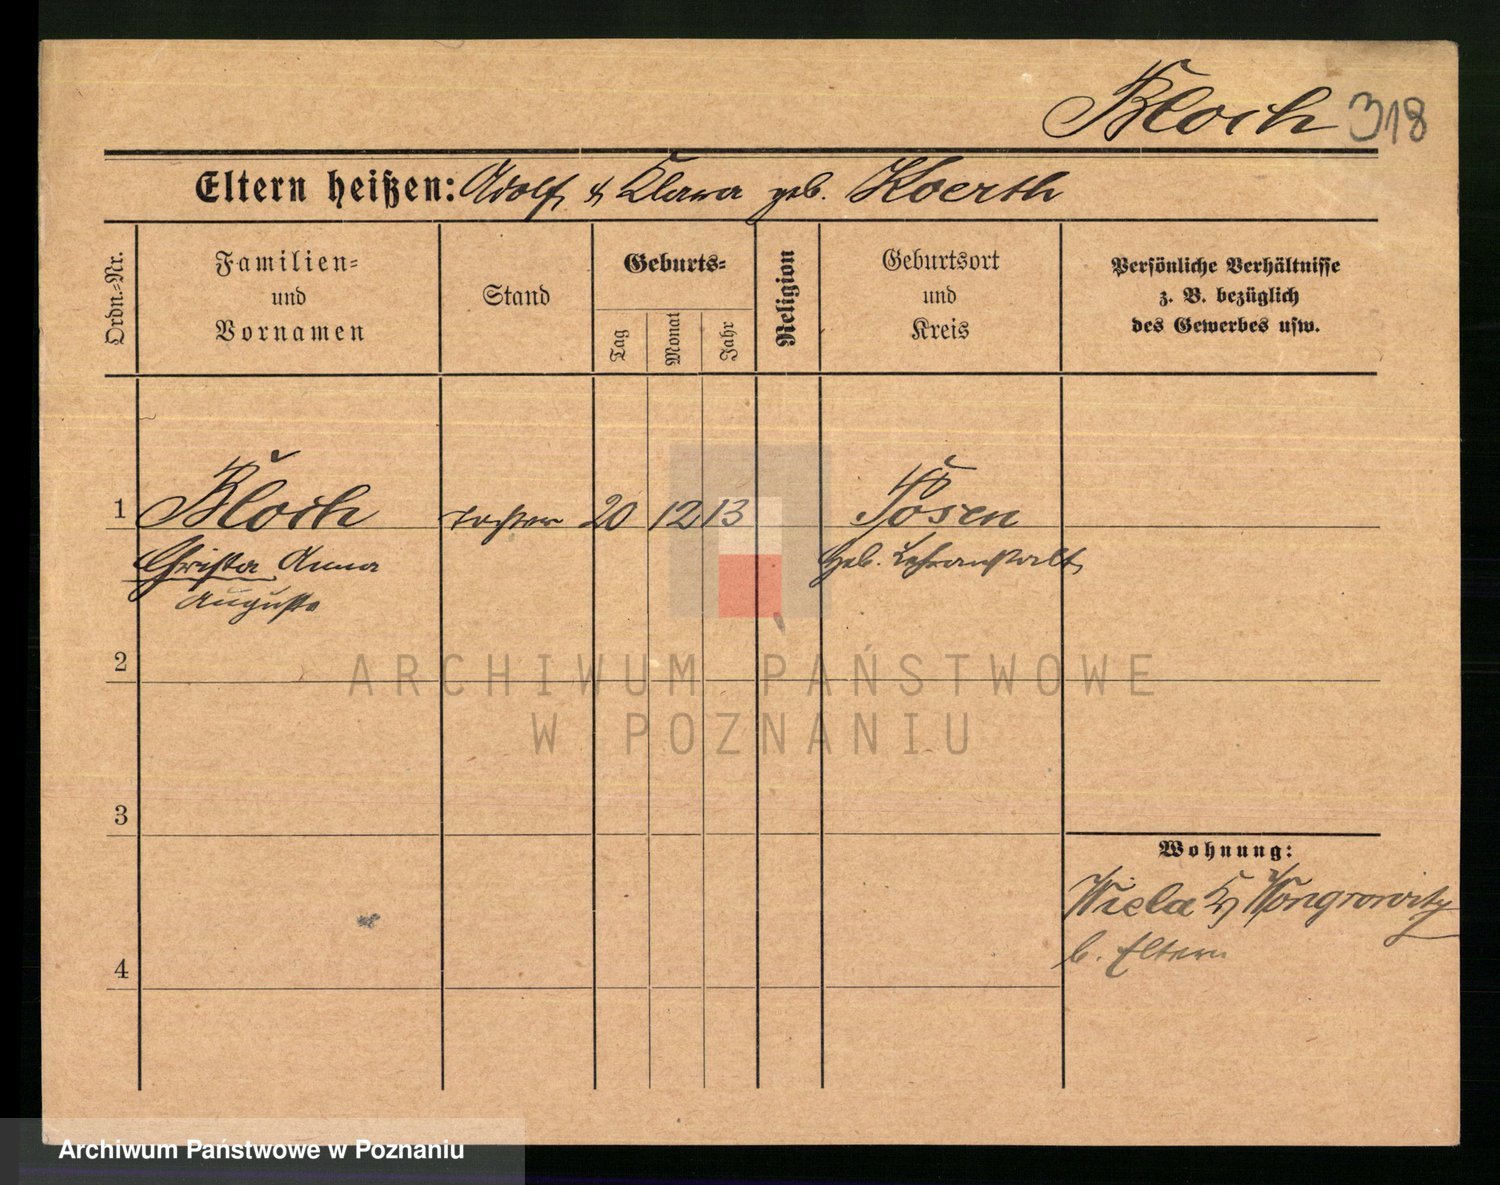 Bloch 318
Eltern heißen: Adolf & Klara geb. Koerth
Ordn.-Nr.
Familien-
und
Vornamen
Stand
Geburts-
Tag
Monat
Jahr
Religion
Geburtsort
und
Kreis
Persönliche Verhältnisse
z. B. bezüglich
des Gewerbes usw.
1 Bloch Tochter 20 12 13 Posen
Christa Anna Heb. Lehranstalt
Auguste
2
3
4
Wohnung:
Wiela Wongrowitz
b. Eltern
ARCHIWUM PAŃSTWOWE
W POZNANIU
Archiwum Państwowe w Poznaniu